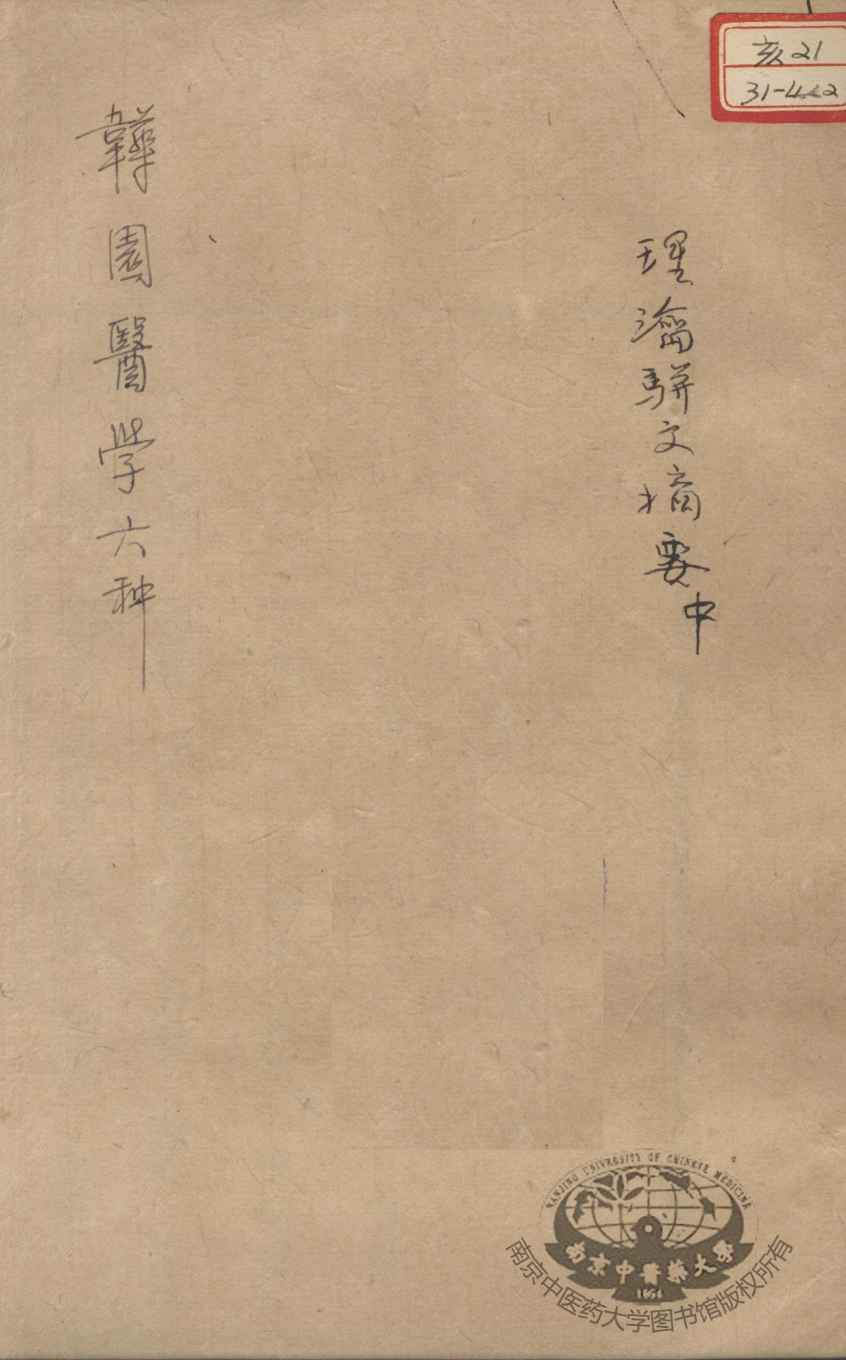 亥21
31-442
理瀹駢文摘要中
韡園醫学六种
NANJING UNIVERSITY OF CHINESE MEDICINE
南京中醫藥大學
1954
南京中医药大学图书馆版权所有